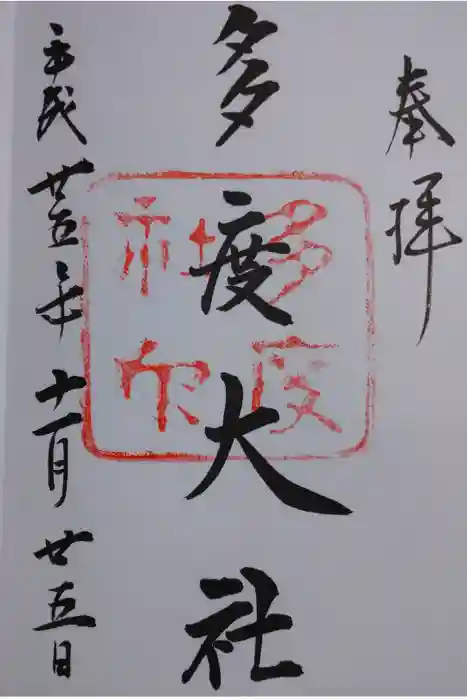 奉拝
多度大社
多度社印
平成廿五年十一月廿五日